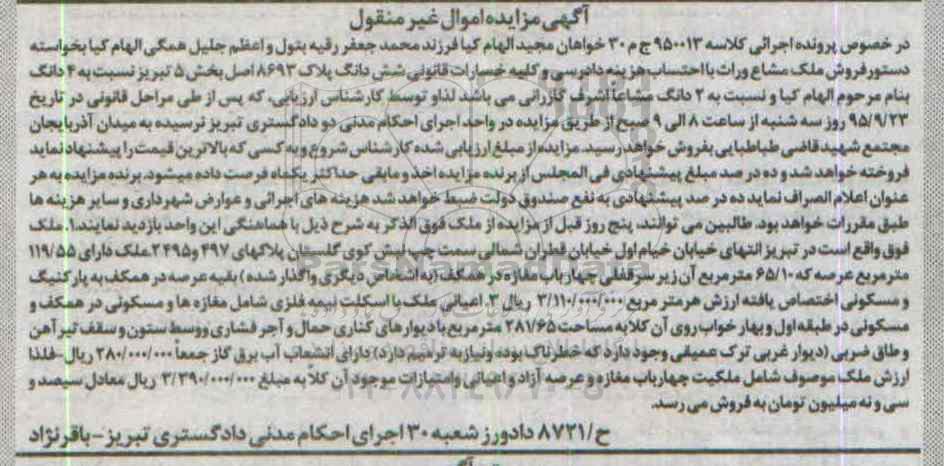 آگهی مزایده اموال غیر منقول
در خصوص پرونده اجرائی کلاسه ۹۵۰۰۱۳ ج م ۳۰ خواهان مجید الهام کیا فرزند محمد جعفر رقیه بتول و اعظم جلیل همگی الهام کیا بخواسته
دستور فروش ملک مشاع وراث با احتساب هزینه دادرسی و کلیه خسارات قانونی شش دانگ پلاک ۸۶۹۳ اصل بخش ۵ تبریز نسبت به ۴ دانگ
بنام مرحوم الهام کیا و نسبت به ۲ دانگ مشاعاً اشرف گازرانی می باشد لذا و توسط کارشناس ارزیابی، که پس از طی مراحل قانونی در تاریخ
۹۵/۹/۲۳ روز سه شنبه از ساعت ۸ الی ۹ صبح از طریق مزایده در واحد اجرای احکام مدنی دو دادگستری تبریز نرسیده به میدان آذربایجان
مجتمع شهید قاضی طباطبایی بفروش خواهد رسید. مزایده از مبلغ ارزیابی شده کارشناس شروع و به کسی که بالاترین قیمت را پیشنهاد نماید
فروخته خواهد شد و ده در صد مبلغ پیشنهادی فی المجلس از برنده مزایده اخذ و مابقی حداکثر یکماه فرصت داده میشود. برنده مزایده به هر
عنوان اعلام انصراف نماید ده در صد پیشنهادی به نفع صندوق دولت ضبط خواهد شد هزینه های اجرائی و عوارض شهرداری و سایر هزینه ها
طبق مقررات خواهد بود. طالبین می توانند، پنج روز قبل از مزایده از ملک فوق الذکر به شرح ذیل با هماهنگی این واحد بازدید نمایند.۱.ملک
فوق واقع است در تبریز انتهای خیابان خیام اول خیابان قطران شمالی سمت چپ نبش کوی گلستان پلاکهای ۴۹۷ و ۲۴۹۵.۲.ملک دارای ۱۱۹/۵۵
مترمربع عرصه که ۶۵/۱۰ مترمربع آن زیر سرقفلی چهار باب مغازه در همکف (به اشخاص دیگری واگذار شده) بقیه عرصه در همکف به پارکینگ
و مسکونی اختصاص یافته ارزش هر متر مربع ۳/۱۱۰/۰۰۰/۰۰۰ ریال ۳. اعیانی ملک با اسکلت نیمه فلزی شامل مغازه ها و مسکونی در همکف و
مسکونی در طبقه اول و بهار خواب روی آن کلا به مساحت ۲۸۱/۶۵ متر مربع با دیوارهای کناری حمال و آجر فشاری ووسط ستون و سقف تیر آهن
و طاق ضربی (دیوار غربی ترک عمیقی وجود دارد که خطرناک بوده ونیاز به ترمیم دارد) دارای انشعاب آب برق گاز جمعاً ۲۸۰/۰۰۰/۰۰۰ ریال - فلذا
ارزش ملک موصوف شامل ملکیت چهارباب مغازه و عرصه آزاد و اعیانی وامتیازات موجود آن کلاً به مبلغ ۳/۳۹۰/۰۰۰/۰۰۰ ریال معادل سیصد و
سی و نه میلیون تومان به فروش می رسد.
ح/۸۷۲۱ دادورز شعبه ۳۰ اجرای احکام مدنی دادگستری تبریز - باقرنژاد